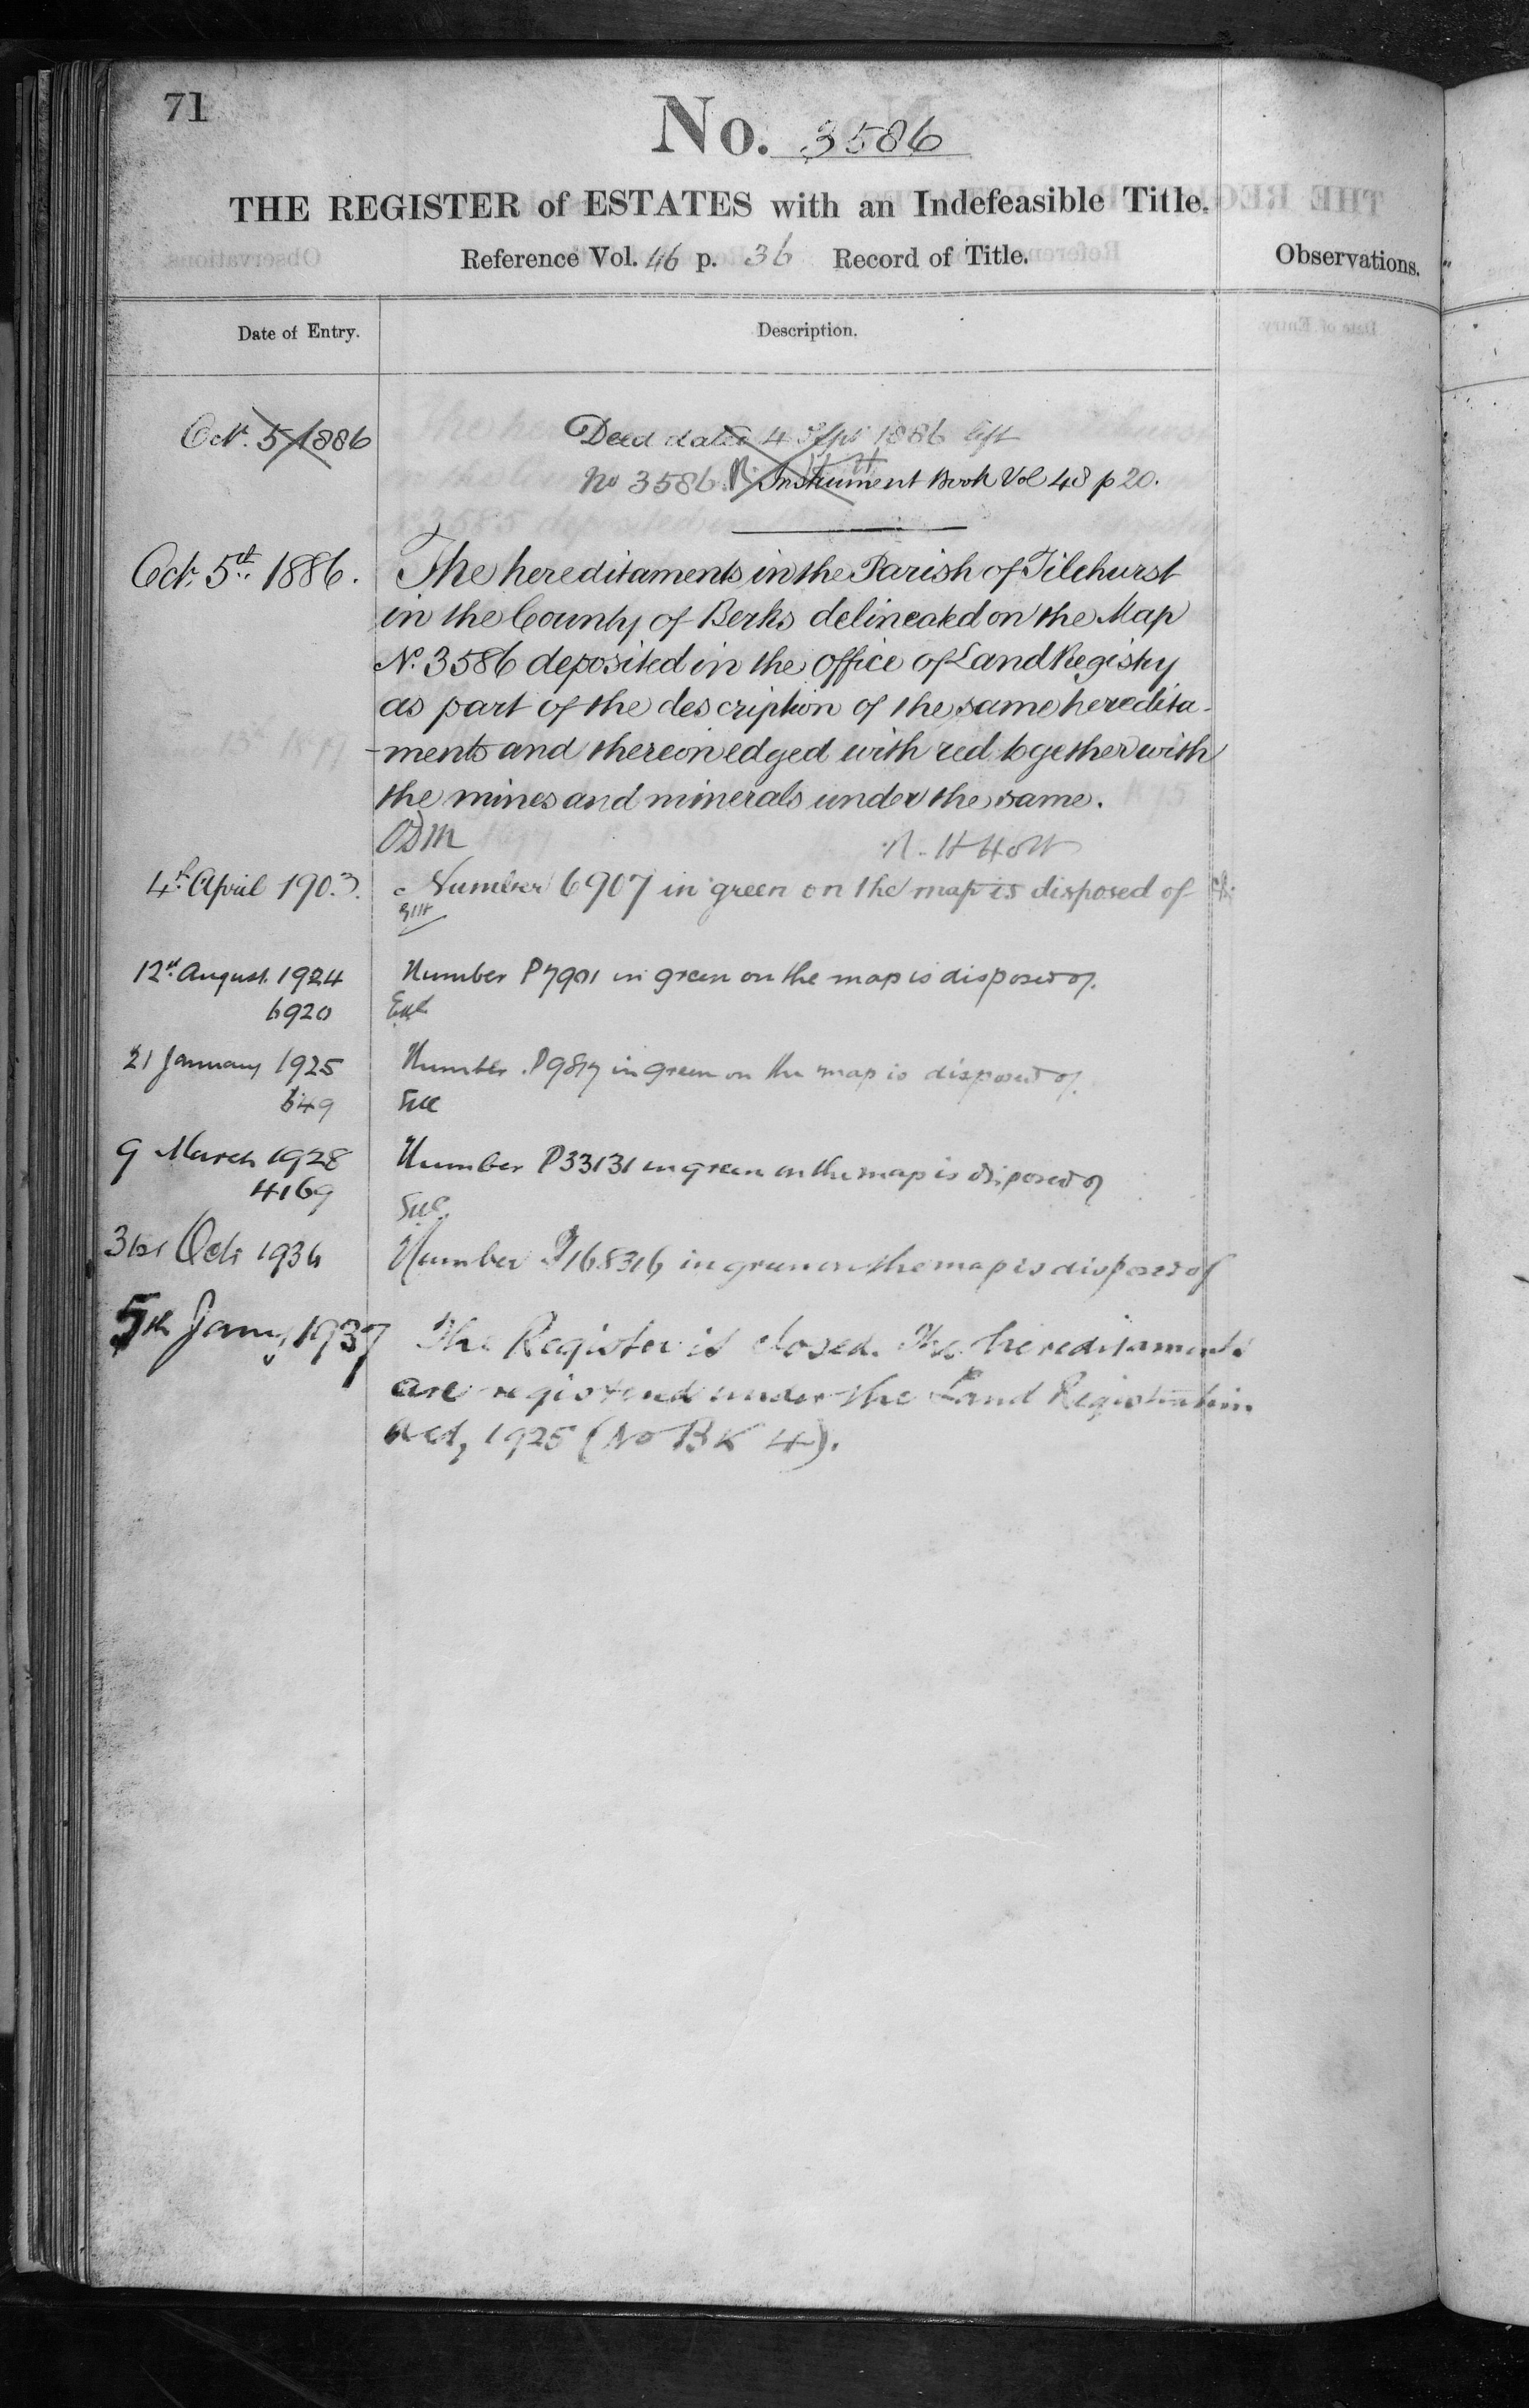 71
No. 3586
THE REGISTER of ESTATES with an Indefeasible Title.
Reference Vol. 46 p. 36 Record of Title.
Observations.
Date of Entry.
Description.
Oct. 5 1886
Deed dated 4 Sept 1886 left
No 3586 Instrument Book Vol 48 p 20.
Oct. 5th 1886.
The hereditaments in the Parish of Tilehurst
in the County of Berks delineated on the Map
No. 3586 deposited in the office of Land Registry
as part of the description of the same heredita-
-ments and thereon edged with red together with
the mines and minerals under the same.
R. H Holt
4th April 1903.
Number 6907 in green on the map is disposed of
12th August 1924
6920
Number P7901 in green on the map is disposed of.
21 January 1925
649
Number P9817 in green on the map is disposed of.
9 March 1928
4169
Number P33131 in green on the map is disposed of
31st Oct 1936
Number P168316 in green on the map is disposed of
5th Jany 1937
The Register is closed. The hereditaments
are registered under the Land Registration
Act, 1925 (No BK 4).